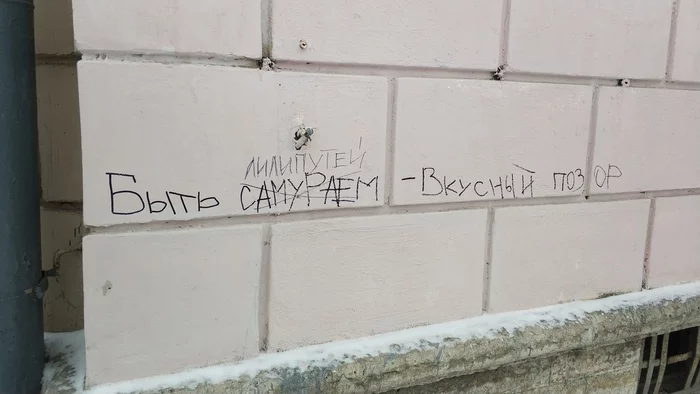 ЛИЛИПУТЕЙ
Быть САМУРАЕМ - Вкусный позор